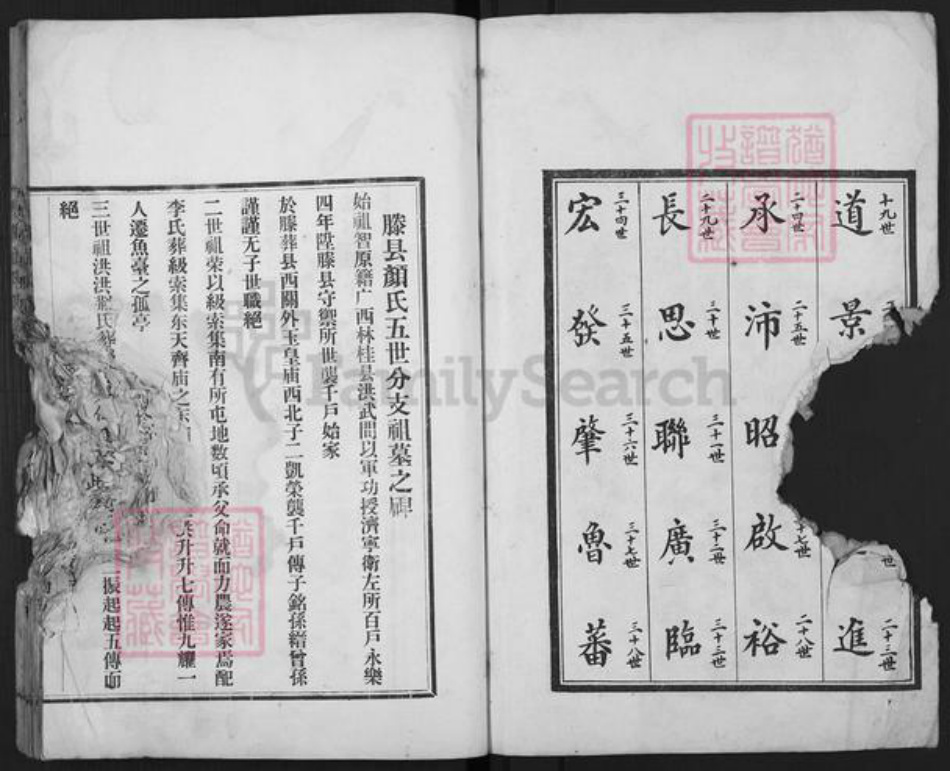 十九世 道
景
二十三世 進
二十四世 承
二十五世 沛
昭
十七世 啟
二十八世 裕
二十九世 長
三十世 思
三十一世 聯
三十二世 廣
三十三世 臨
三十四世 宏
三十五世 發
三十六世 肇
三十七世 魯
三十八世 蕃
滕县顏氏五世分支祖墓之碑
始祖智原籍广西林桂县洪武間以軍功授濟寧衛左所百戶永樂
四年陞滕县守禦所世襲千戶始家
於滕葬县西關外玉皇庙西北子二凱榮襲千戶傳子銘孫縉曾孫
謹謹无子世職絕
二世祖荣以級索集南有所屯地数頃承父命就而力農遂家焉配
李氏葬級索集东天齊庙之东
洪升升七傳惟九耀一
人遷魚臺之孤亭
三世祖洪洪配氏葬
振起起五傳而
絕
FamilySearch